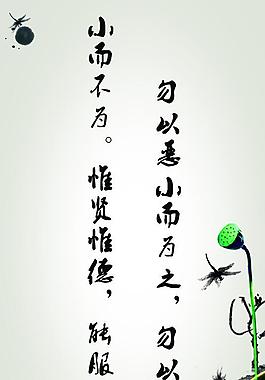 勿以恶小而为之，勿以
小而不为。惟贤惟德，能服